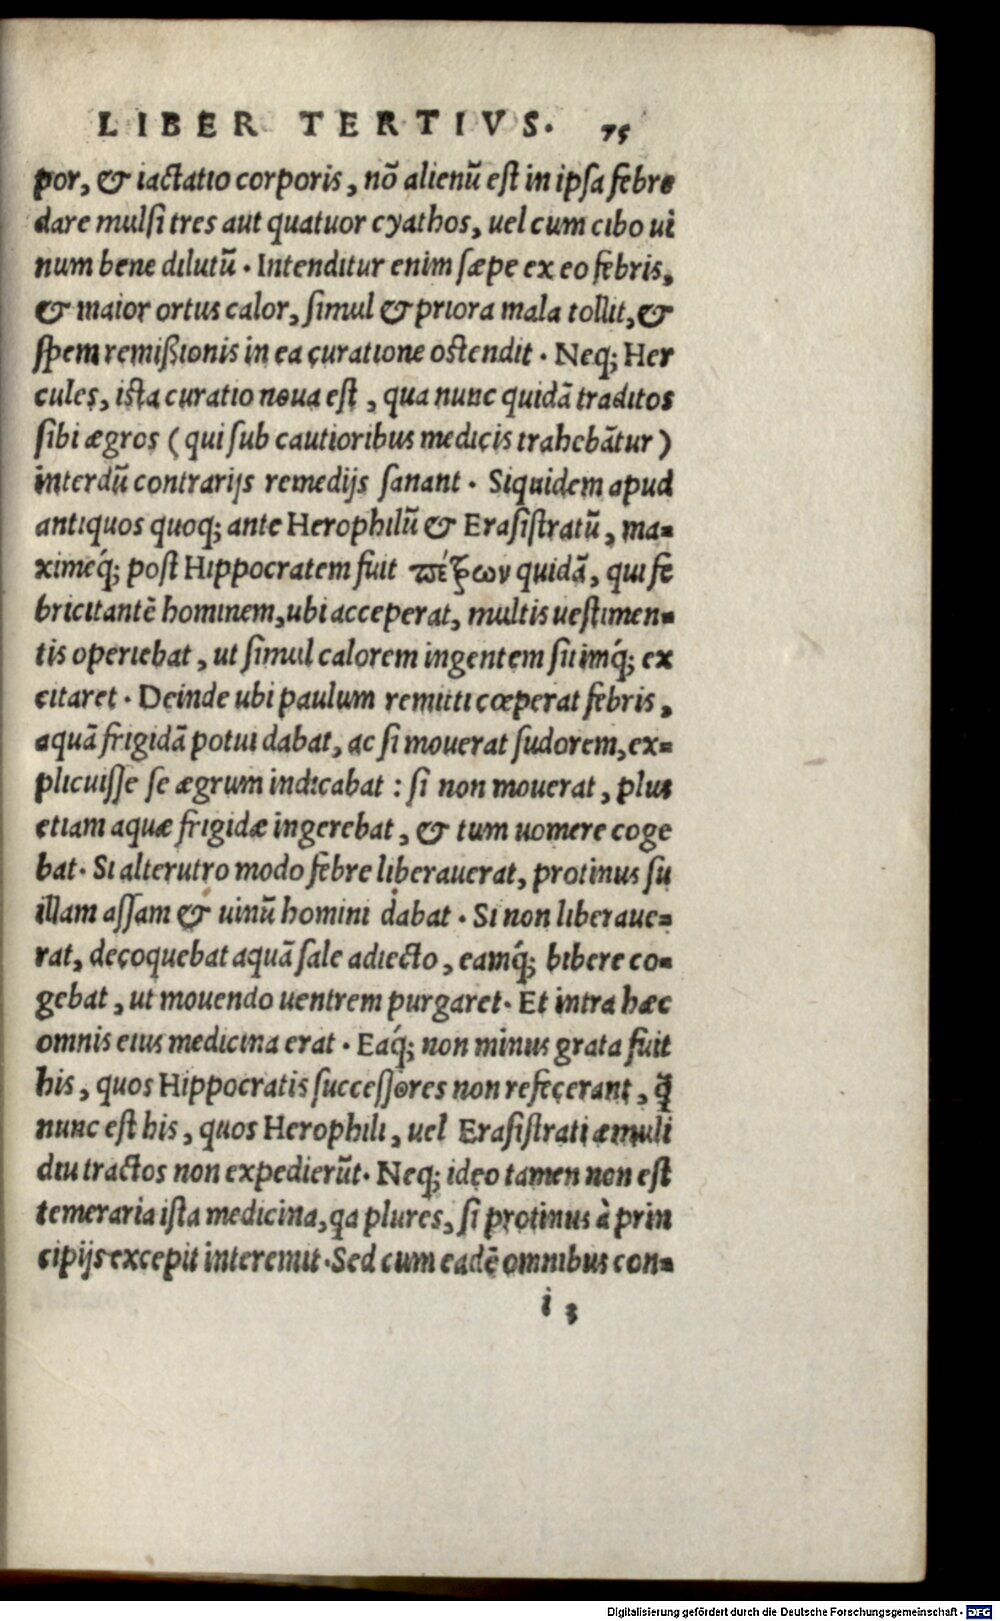 LIBER TERTIVS. 75
por, & iactatio corporis, nō alienū est in ipsa febre
dare mulsi tres aut quatuor cyathos, uel cum cibo ui
num bene dilutū. Intenditur enim sæpe ex eo febris,
& maior ortus calor, simul & priora mala tollit, &
spem remißionis in ea curatione ostendit. Neq; Her
cules, ista curatio noua est, qua nunc quidā traditos
sibi ægros (qui sub cautioribus medicis trahebātur)
interdū contrarijs remedijs sanant. Siquidem apud
antiquos quoq; ante Herophilū & Erasistratū, ma=
ximeq́; post Hippocratem fuit πέτρων quidā, qui fe
bricitantē hominem, ubi acceperat, multis uestimen=
tis operiebat, ut simul calorem ingentem sitimq́; ex
citaret. Deinde ubi paulum remitti cœperat febris,
aquā frigidā potui dabat, ac si mouerat sudorem, ex=
plicuisse se ægrum indicabat: si non mouerat, plus
etiam aquæ frigidæ ingerebat, & tum uomere coge
bat. Si alterutro modo febre liberauerat, protinus su
illam assam & uinū homini dabat. Si non liberaue=
rat, decoquebat aquā sale adiecto, eamq́; bibere co=
gebat, ut mouendo uentrem purgaret. Et intra hæc
omnis eius medicina erat. Eaq́; non minus grata fuit
his, quos Hippocratis successores non refecerant, q̄
nunc est his, quos Herophili, uel Erasistrati æmuli
diu tractos non expedierūt. Neq; ideo tamen non est
temeraria ista medicina, qa plures, si protinus à prin
cipijs excepit interemit. Sed cum eadē omnibus con=
i 3
Digitalisierung gefördert durch die Deutsche Forschungsgemeinschaft - DFG